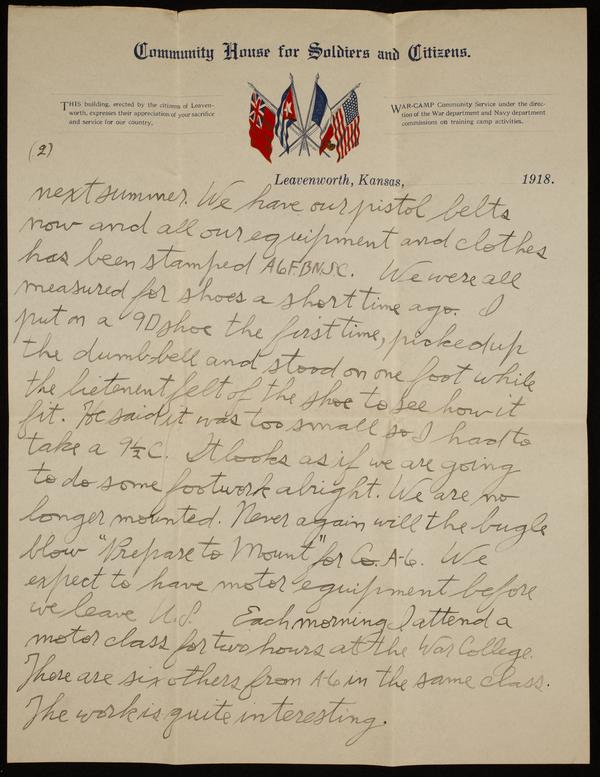 Community House for Soldiers and Citizens.
THIS building, erected by the citizens of Leaven-
worth, expresses their appreciation of your sacrifice
and service for our country.
WAR-CAMP Community Service under the direc-
tion of the War department and Navy department
commissions on training camp activities.
(2)
Leavenworth, Kansas, 1918.
next summer. We have our pistol belts
now and all our equipment and clothes
has been stamped A6FBNSC. We were all
measured for shoes a short time ago. I
put on a 9D shoe the first time, picked up
the dumb-bell and stood on one foot while
the lietenent felt of the shoe to see how it
fit. He said it was too small so I had to
take a 9½C. It looks as if we are going
to do some footwork alright. We are no
longer mounted. Never again will the bugle
blow "Prepare to Mount" for Co. A-6. We
expect to have motor equipment before
we leave U.S. Each morning I attend a
motor class for two hours at the War College.
There are six others from A-6 in the same class.
The work is quite interesting.